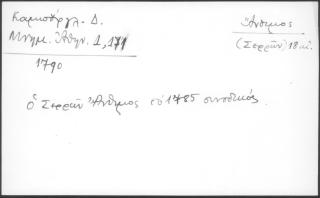 Καμπούρογλ. Δ.
Μνημ. Ἀθην. Δ, 171
1790
Ἄνθιμος
(Σερρῶν) 18 αἰ.
ὁ Σερρῶν Ἄνθιμος τό 1785 συνοδικός.